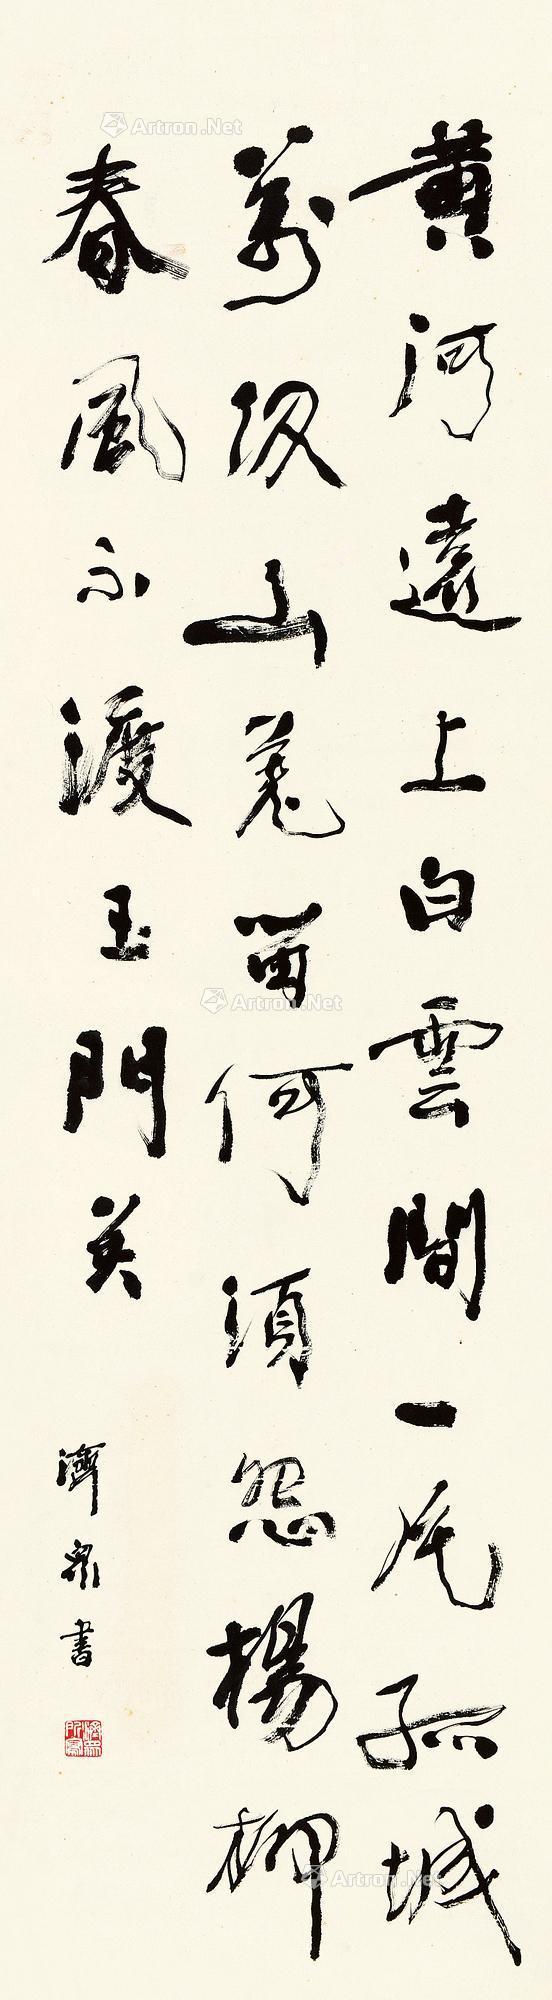 黄河遠上白雲間一片孤城
萬仞山羌笛何須怨楊柳
春風不渡玉門关
濟眾書
Artron.Net
Artron.Net
Artron.Net